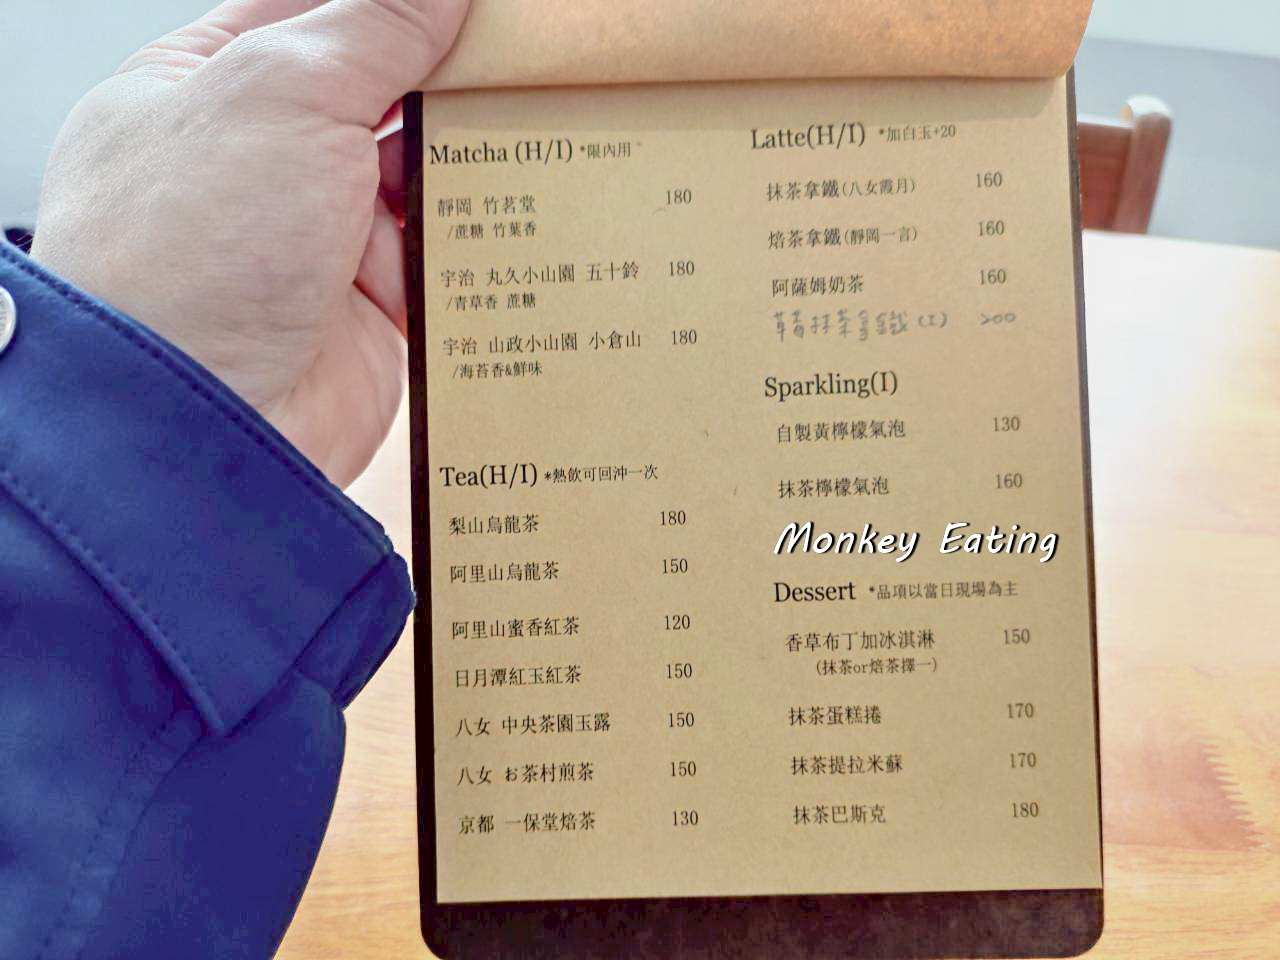 Matcha (H/I) *限內用
靜岡 竹茗堂 180
/蔗糖 竹葉香
宇治 丸久小山園 五十鈴 180
/青草香 蔗糖
宇治 山政小山園 小倉山 180
/海苔香&鮮味
Tea(H/I) *熱飲可回沖一次
梨山烏龍茶 180
阿里山烏龍茶 150
阿里山蜜香紅茶 120
日月潭紅玉紅茶 150
八女 中央茶園玉露 150
八女 お茶村煎茶 150
京都 一保堂焙茶 130
Latte(H/I) *加白玉+20
抹茶拿鐵(八女霞月) 160
焙茶拿鐵(靜岡一言) 160
阿薩姆奶茶 160
草莓抹茶拿鐵(I) 200
Sparkling(I)
自製黃檸檬氣泡 130
抹茶檸檬氣泡 160
Monkey Eating
Dessert *品項以當日現場為主
香草布丁加冰淇淋 150
(抹茶or焙茶擇一)
抹茶蛋糕捲 170
抹茶提拉米蘇 170
抹茶巴斯克 180